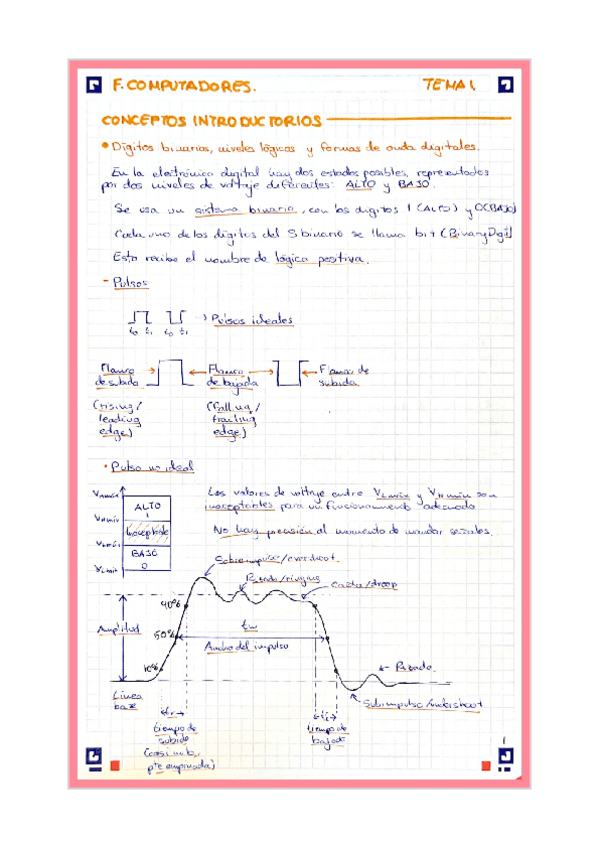 F. COMPUTADORES. TEMA 1.
CONCEPTOS INTRODUCTORIOS
• Dígitos binarios, niveles lógicos y formas de onda digitales.
En la electrónica digital hay dos estados posibles, representados
por dos niveles de voltaje diferentes: ALTO y BAJO.
Se usa un sistema binario, con los dígitos 1 (ALTO) y 0 (BAJO)
Cada uno de los dígitos del S binario se llama bit (Binary Digit)
Esto recibe el nombre de lógica positiva.
- Pulsos
t0 t1 t0 t1 → Pulsos ideales
Flanco de subida
(rising/
leading
edge)
Flanco de bajada
(falling/
trailing
edge)
Flanco de subida
• Pulso no ideal
VHmáx
ALTO
1
VHmín
Inaceptable
VLmáx
BAJO
0
VLmín
Los valores de voltaje entre VLmáx y VHmin son
inaceptables para un funcionamiento adecuado
No hay precisión al momento de mandar señales.
Sobreimpulso/overshoot
Rizado/ringing
Caída/droop
90%
50%
10%
Amplitud
tw
Ancho del impulso
Rizado.
Subimpulso/undershoot
Línea
base
tr
tiempo de
subida
tiempo de
bajada
pte empinada)
1